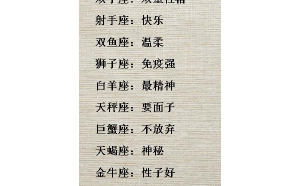 射手座：快乐
双鱼座：温柔
狮子座：免疫强
白羊座：最精神
天秤座：要面子
巨蟹座：不放弃
天蝎座：神秘
金牛座：性子好